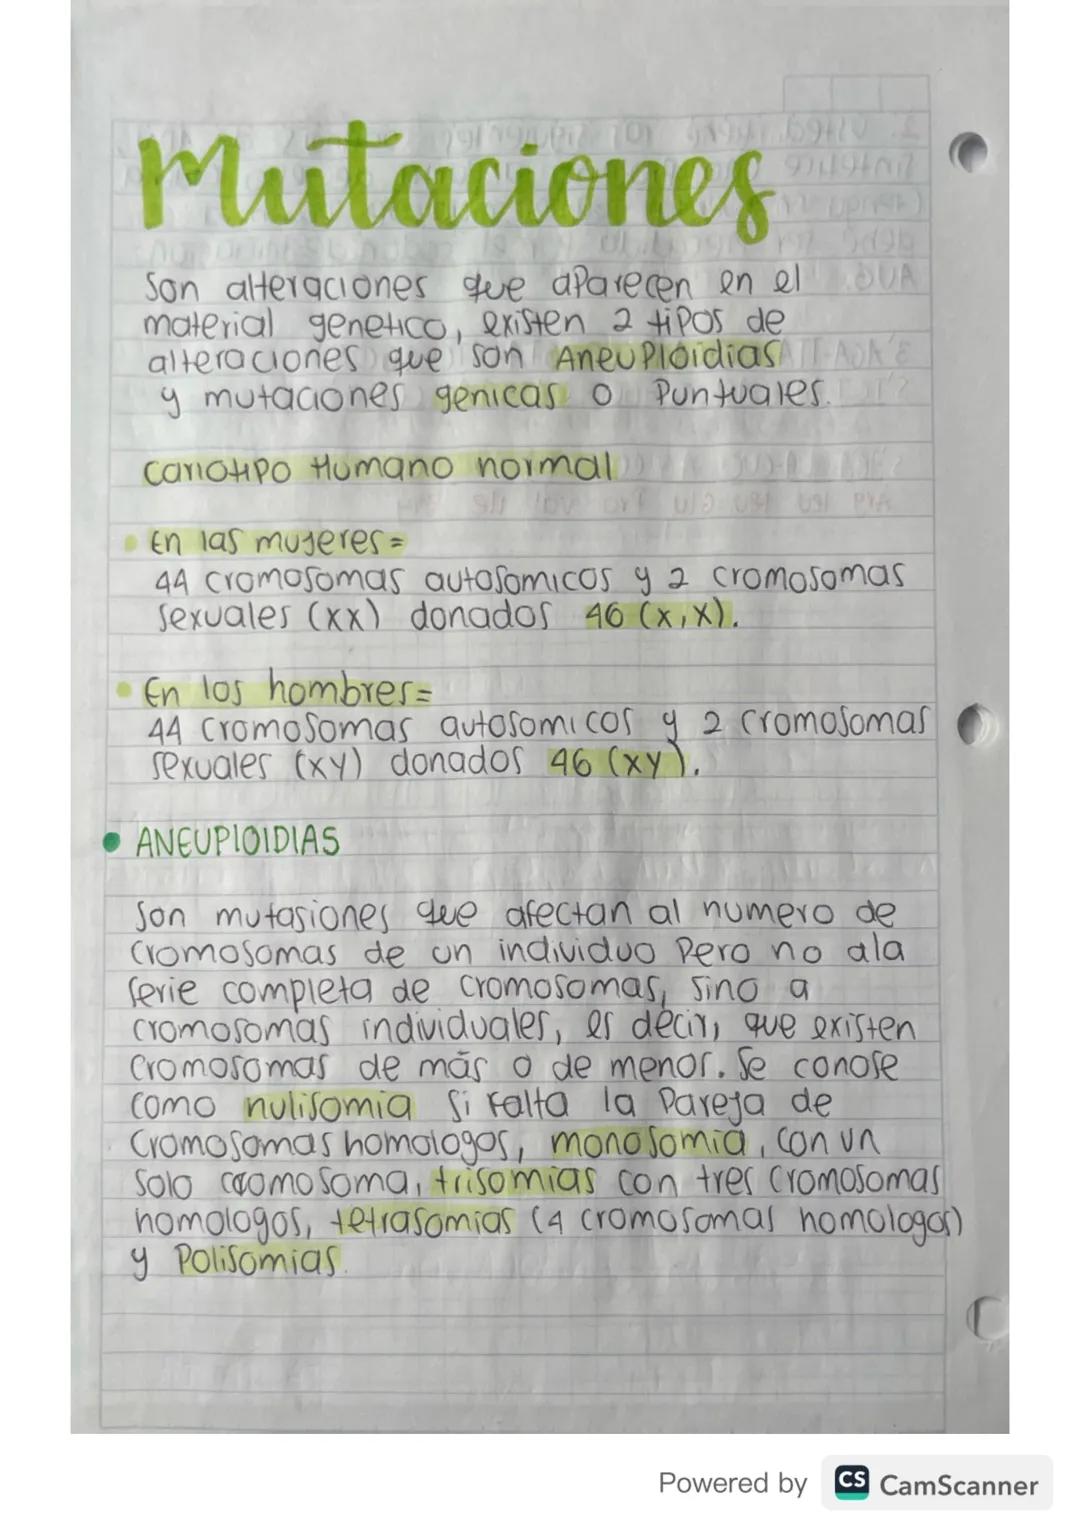 Mutaciones
Son alteraciones que aparecen en el
material genetico, existen 2 tipos de
alteraciones que son Aneuploidias
y mutaciones genicas o Puntuales.
cariotipo Humano normal
• En las mujeres =
44 cromosomas autosomicos y 2 cromosomas
sexuales (xx) donados 46 (x,x).
• En los hombres =
44 cromosomas autosomicos y 2 cromosomas
sexuales (xy) donados 46 (xy).
• ANEUPLOIDIAS
Son mutasiones que afectan al numero de
cromosomas de un individuo Pero no ala
serie completa de cromosomas, sino a
cromosomas individuales, es decir, que existen
cromosomas de más o de menos. Se conose
como nulisomia si Falta la Pareja de
cromosomas homologos, monosomia, con un
solo cromosoma, trisomias con tres cromosomas
homologos, tetrasomias (4 cromosomas homologos)
y Polisomias.
Powered by CS CamScanner